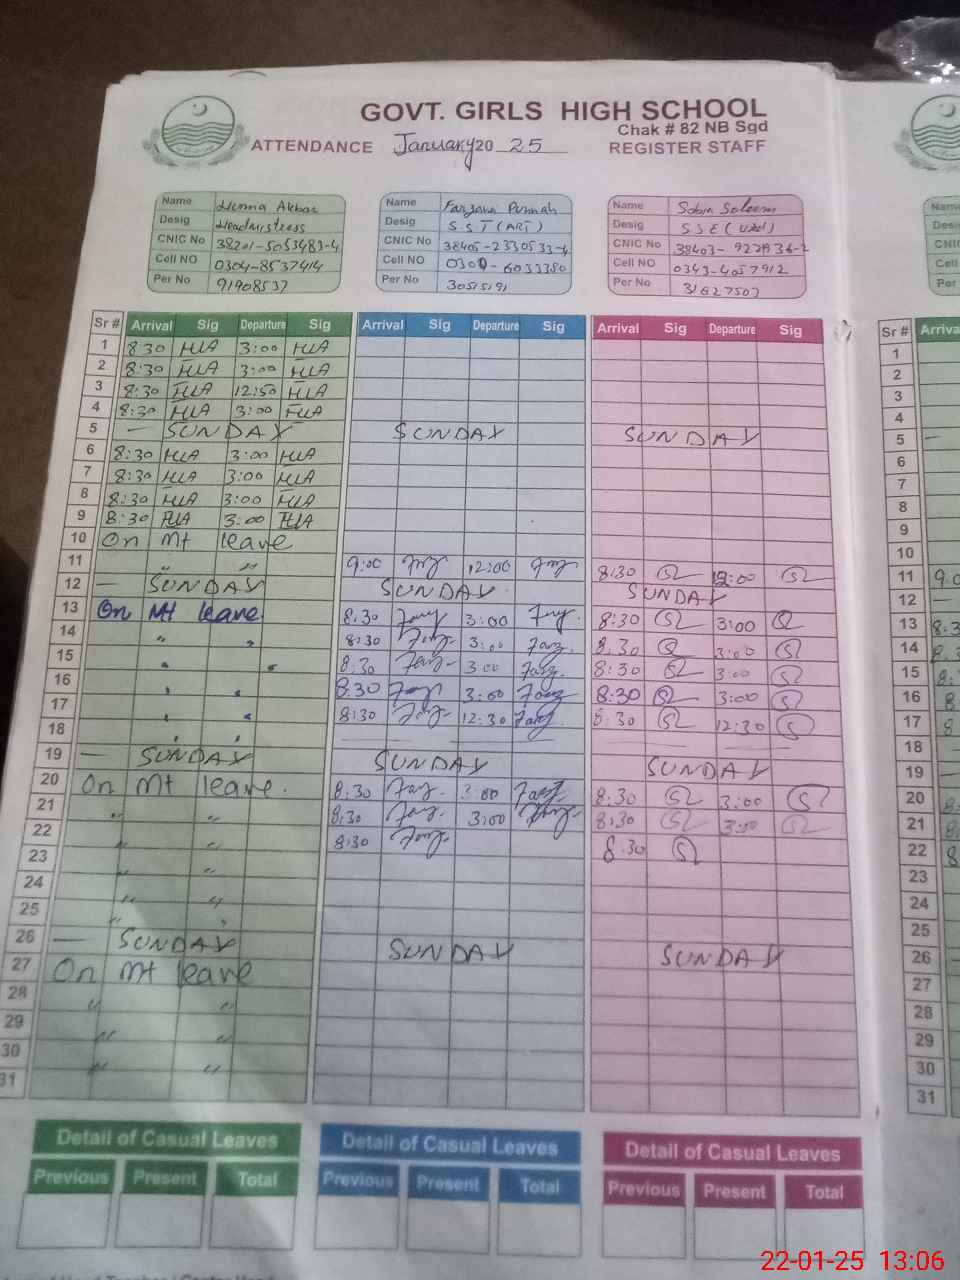 GOVT. GIRLS HIGH SCHOOL
Chak # 82 NB Sgd
ATTENDANCE January 20 25 REGISTER STAFF
Name Henna Akbar Name Farzana Name Sobia Saleem Name
Desig Headmistress Desig S.S.T (ART) Desig S S E (Urdu) Desig
CNIC No 38201-5053483-4 CNIC No 38405-2330533-4 CNIC No 38403- CNIC
Cell NO 0304-8537414 Cell NO 0300-6033380 Cell NO 0343-4057912 Cell
Per No 91908537 Per No 30515191 Per No 31627507 Per
Sr # Arrival Sig Departure Sig Arrival Sig Departure Sig Arrival Sig Departure Sig Sr # Arriva
1 8:30 HUA 3:00 HUA 1
2 8:30 HUA 3:00 HUA 2
3 8:30 HUA 12:50 HUA 3
4 8:30 HUA 3:00 HUA 4
5 — SUNDAY SUNDAY SUNDAY 5 —
6 8:30 HUA 3:00 HUA 6
7 8:30 HUA 3:00 HUA 7
8 8:30 HUA 3:00 HUA 8
9 8:30 HUA 3:00 HUA 9
10 On Mt leave 10
11 〃 〃 9:00 Farz 12:00 Farz 8:30 12:00 11 9.0
12 — SUNDAY SUNDAY SUNDAY 12 —
13 On Mt leave 8:30 Farz 3:00 Farz. 8:30 3:00 13 8:3
14 〃 〃 8:30 Farz 3:00 Farz. 8:30 3:00 14 8.3
15 〃 〃 8:30 Farz 3:00 Farz. 8:30 3:00 15 8:
16 〃 〃 8:30 Farz 3:00 Farz 8:30 3:00 16 8
17 〃 〃 8:30 Farz 12:30 Farz. 8:30 12:30 17 8
18 〃 〃 18 —
19 — SUNDAY SUNDAY SUNDAY 19 —
20 On Mt leave. 8:30 Farz. 3:00 Farz 8:30 3:00 20 8
21 〃 〃 8:30 Farz. 3:00 Farz 8:30 3:00 21 8
22 〃 〃 8:30 Farz 8:30 22 8
23 〃 〃 23
24 〃 〃 24
25 〃 〃 25
26 — SUNDAY SUNDAY SUNDAY 26
27 On Mt leave 27
28 〃 〃 28
29 〃 〃 29
30 〃 〃 30
31 31
Detail of Casual Leaves Detail of Casual Leaves Detail of Casual Leaves
Previous Present Total Previous Present Total Previous Present Total
22-01-25 13:06